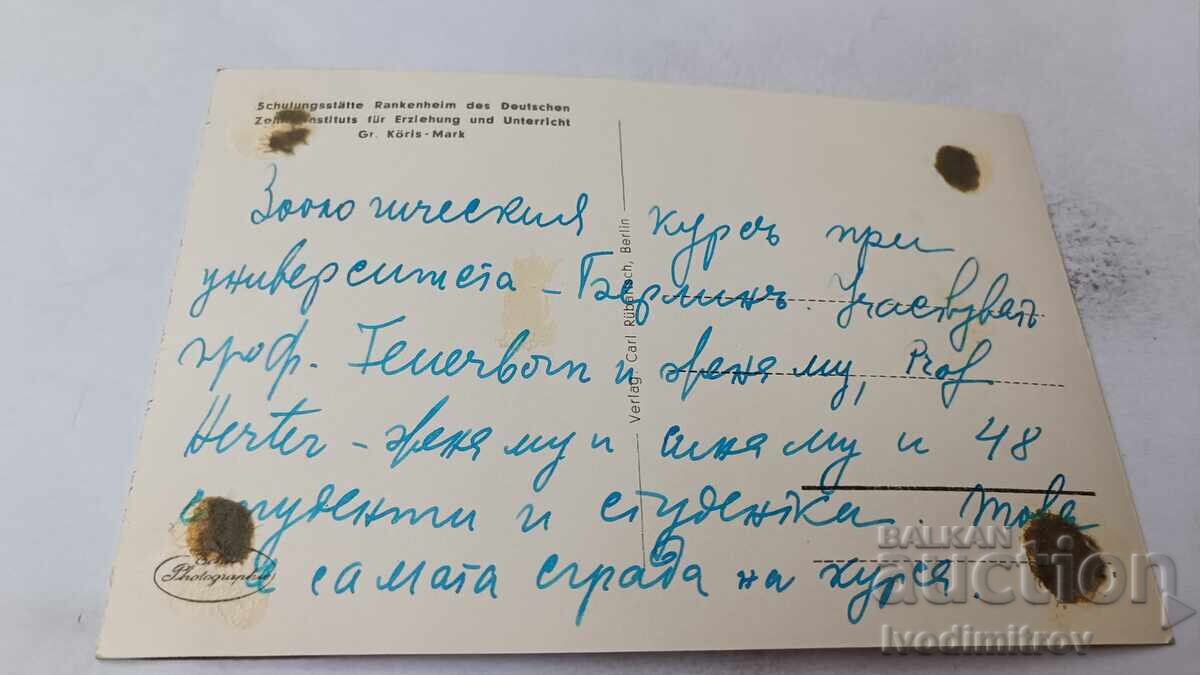 Schulungsstätte Rankenheim des Deutschen
Zentralinstituts für Erziehung und Unterricht
Gr. Köris-Mark
Зоологическия курсъ при
университета - Берлинъ. Участвуватъ
проф. Feuerborn и жена му, Prof
Herter - жена му и сина му и 48
студенти и студентки. Това
е самата сграда на курса.
Verlag: Carl Rübartsch, Berlin
Echte
Photographie
BALKAN
auction
Ivodimitrov